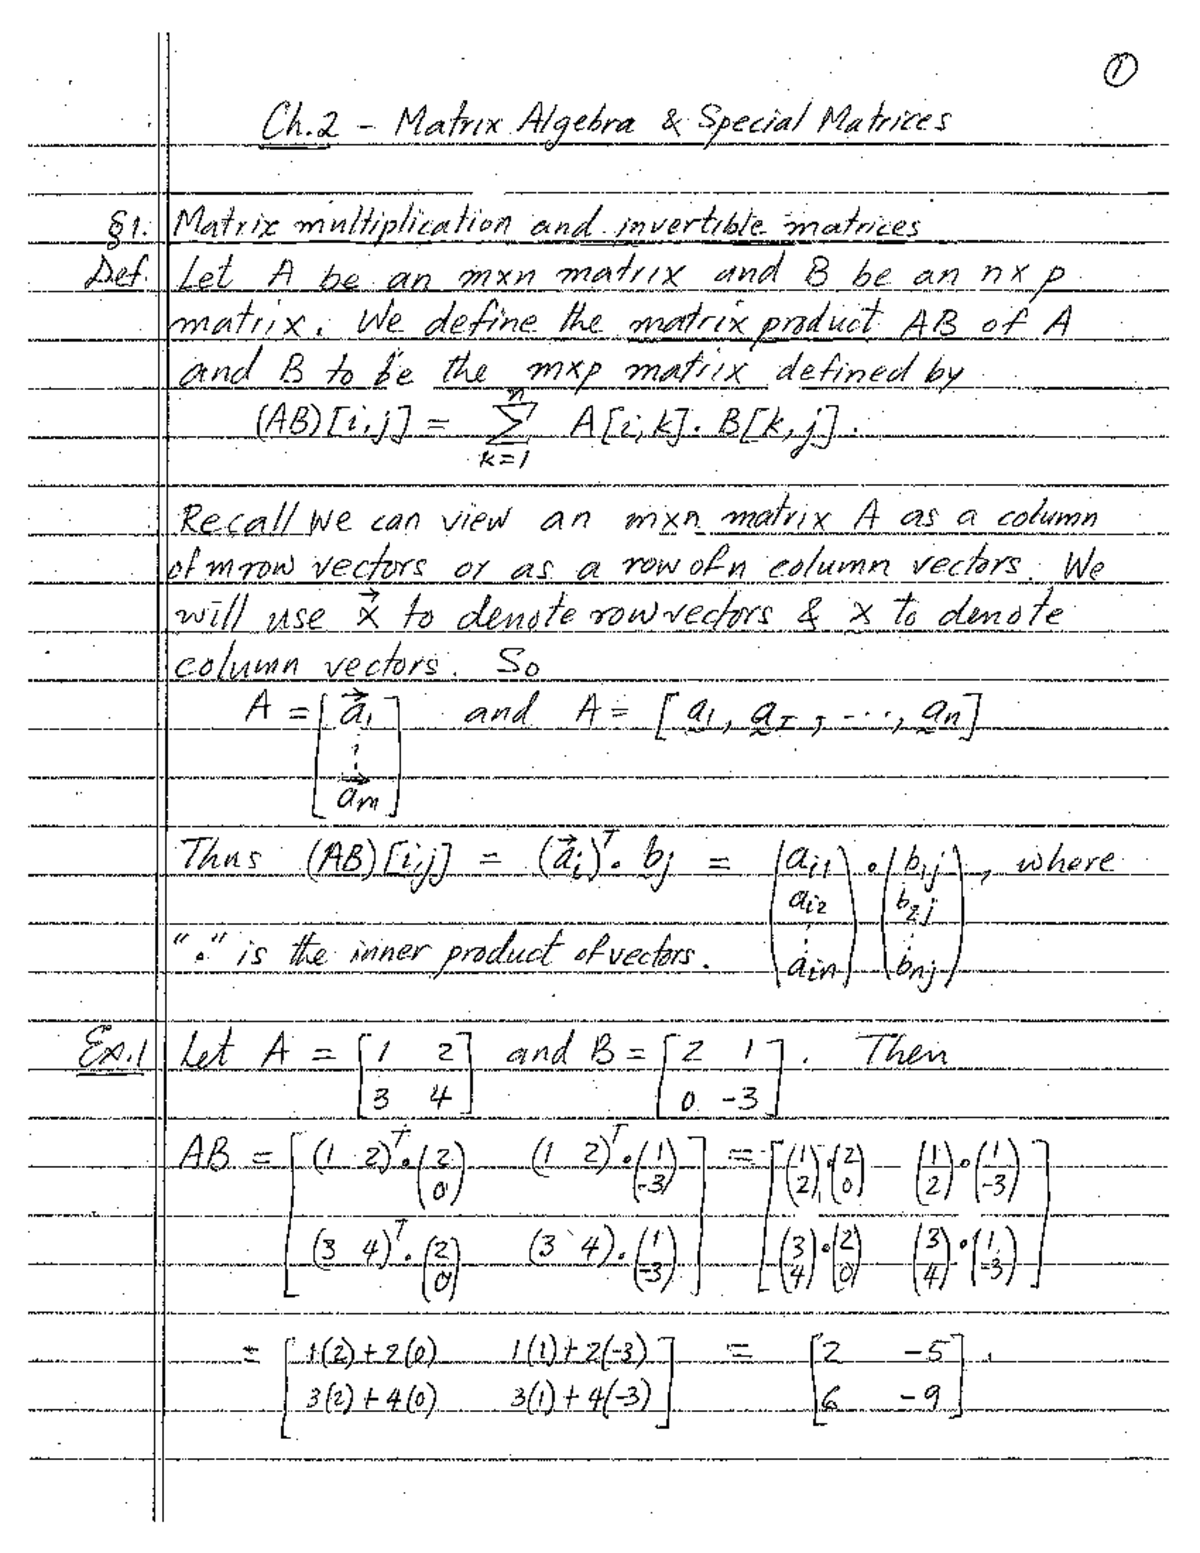 ①
Ch.2 - Matrix Algebra & Special Matrices
§1. Matrix multiplication and invertible matrices
Def. Let A be an mxn matrix and B be an nxp
matrix. We define the matrix product AB of A
and B to be the mxp matrix defined by
(AB)[i,j] = n Σ k=1 A[i,k]. B[k,j].
Recall we can view an mxn matrix A as a column
of m row vectors or as a row of n column vectors. We
will use x⃗ to denote row vectors & x to denote
column vectors. So
A = [a⃗₁ ⋮ a⃗m] and A = [a₁, a₂, ---, an]
Thus (AB)[i,j] = (a⃗i)ᵀ • bj = (ai1 ai2 ⋮ ain) • (b1j b2j ⋮ bnj), where
"•" is the inner product of vectors.
Ex.1 Let A = [1 2 and B = [2 1]. Then
3 4] 0 -3]
AB = [(1 2)ᵀ•(2 0) (1 2)ᵀ•(1 -3)] = [(1 2)•(2 0) (1 2)•(1 -3)]
(3 4)ᵀ•(2 0) (3 4)•(1 -3) (3 4)•(2 0) (3 4)•(1 -3)
= [1(2)+2(0) 1(1)+2(-3)] = [2 -5].
3(2)+4(0) 3(1)+4(-3) 6 -9